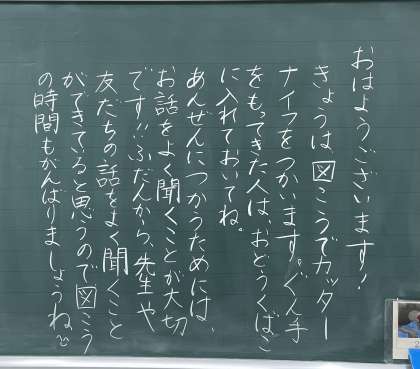 おはようございます!
きょうは図こうでカッター
ナイフをつかいます。ぐん手
をもってきた人は、おどうぐばこ
に入れておいてね。
あんぜんにつかうためには、
お話をよく聞くことが大切
です!!ふだんから、先生や
友だちの話をよく聞くこと
ができてると思うので図こう
の時間もがんばりましょうね